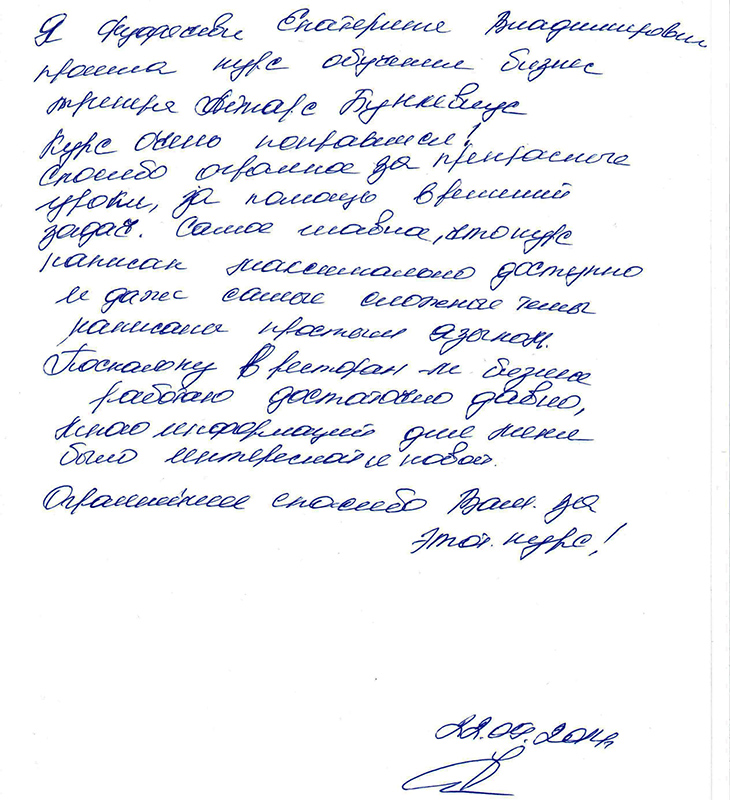 Я Екатерина Владимировна
прошла курс обучения бизнес
тренера Айнарс Бункевичус
Курс очень понравился!
Спасибо огромное за прекрасные
уроки, за помощь в решений
задач. Самое главна, что курс
написан максимально доступно
и даже самые сложные темы
написаны простым языком.
Поскольку в ресторан-м бизнесе
работаю достаточно давно,
много информаций для меня
было интересной и новой.
Огромнейшее спасибо Вам. за
этот. курс!